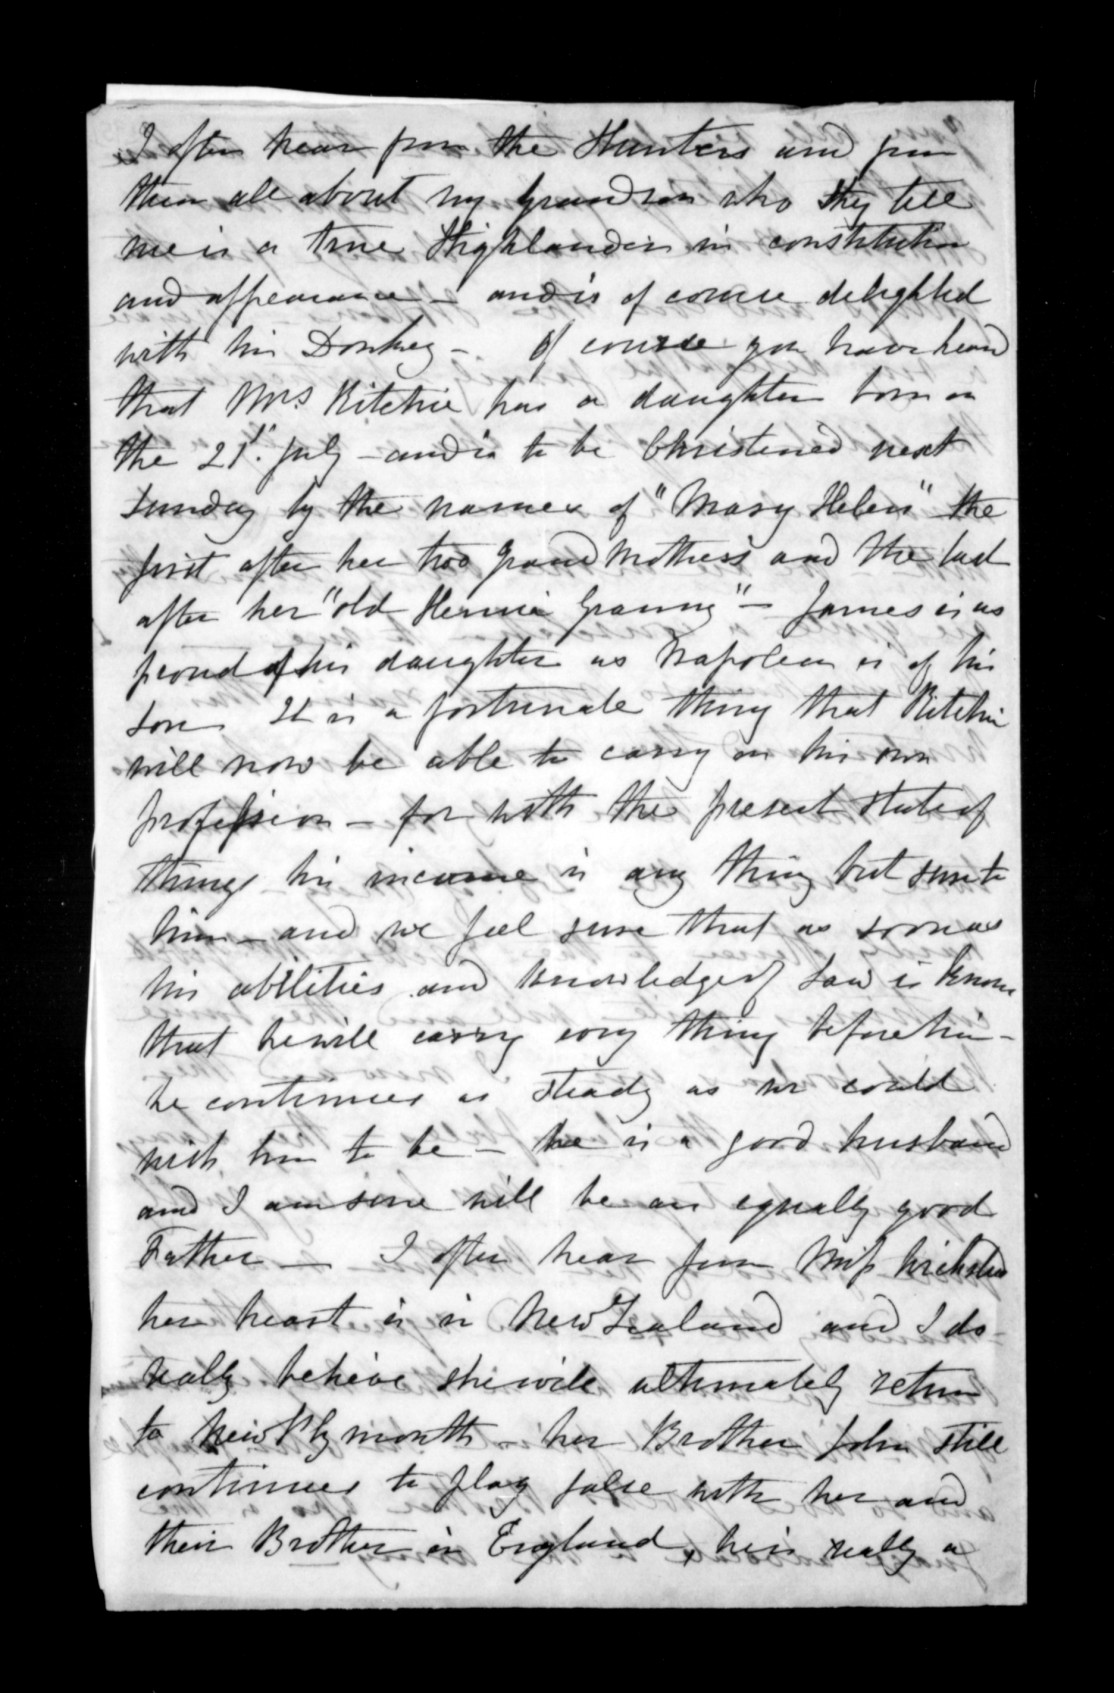 I often hear from the Hunters and from
them all about my Grandson who they tell
me is a true Highlander in constitution
and appearance - and is of course delighted
with his Donkey - Of course you have heard
that Mrs. Ritchie has a daughter born on
the 21st. July - and is to be Christened next
Sunday by the names of "Mary Helen" the
first after her two Grand Mothers and the last
after her "old Granny" - James is as
proud of his daughter as Napoleon is of his
son It is a fortunate thing that Ritchie
will now be able to carry on his own
profession - for with the present state of
things his income is any thing but sure to
him - and we feel sure that as soon as
his abilities and knowledge of Law is known
that he will carry every thing before him -
he continues as steady as we could
wish him to be - he is a good husband
and I am sure will be an equally good
Father - I often hear from Miss
her heart is in New Zealand and I do
really believe she will ultimately return
to New Plymouth - her Brother John still
continues to play false with her and
their Brother in England, he is really a